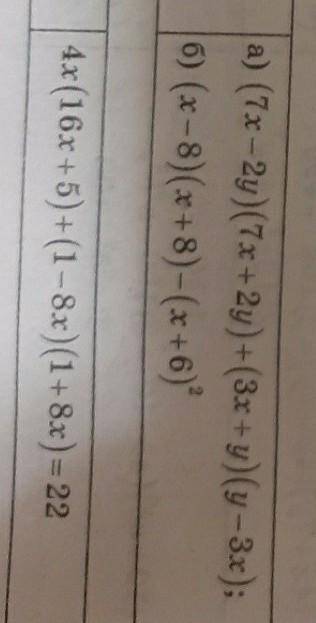 а) (7x−2y)(7x+2y)+(3x+y)(y−3x);
б) (x−8)(x+8)−(x+6)²
4x(16x+5)+(1−8x)(1+8x)=22